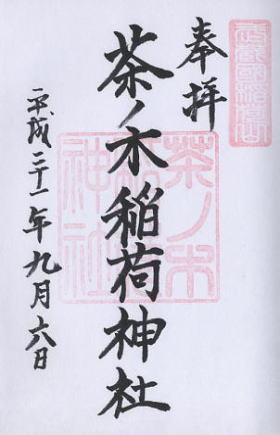 奉拝
茶ノ木稲荷神社
平成二十一年九月六日
茶ノ木
稲荷
神社